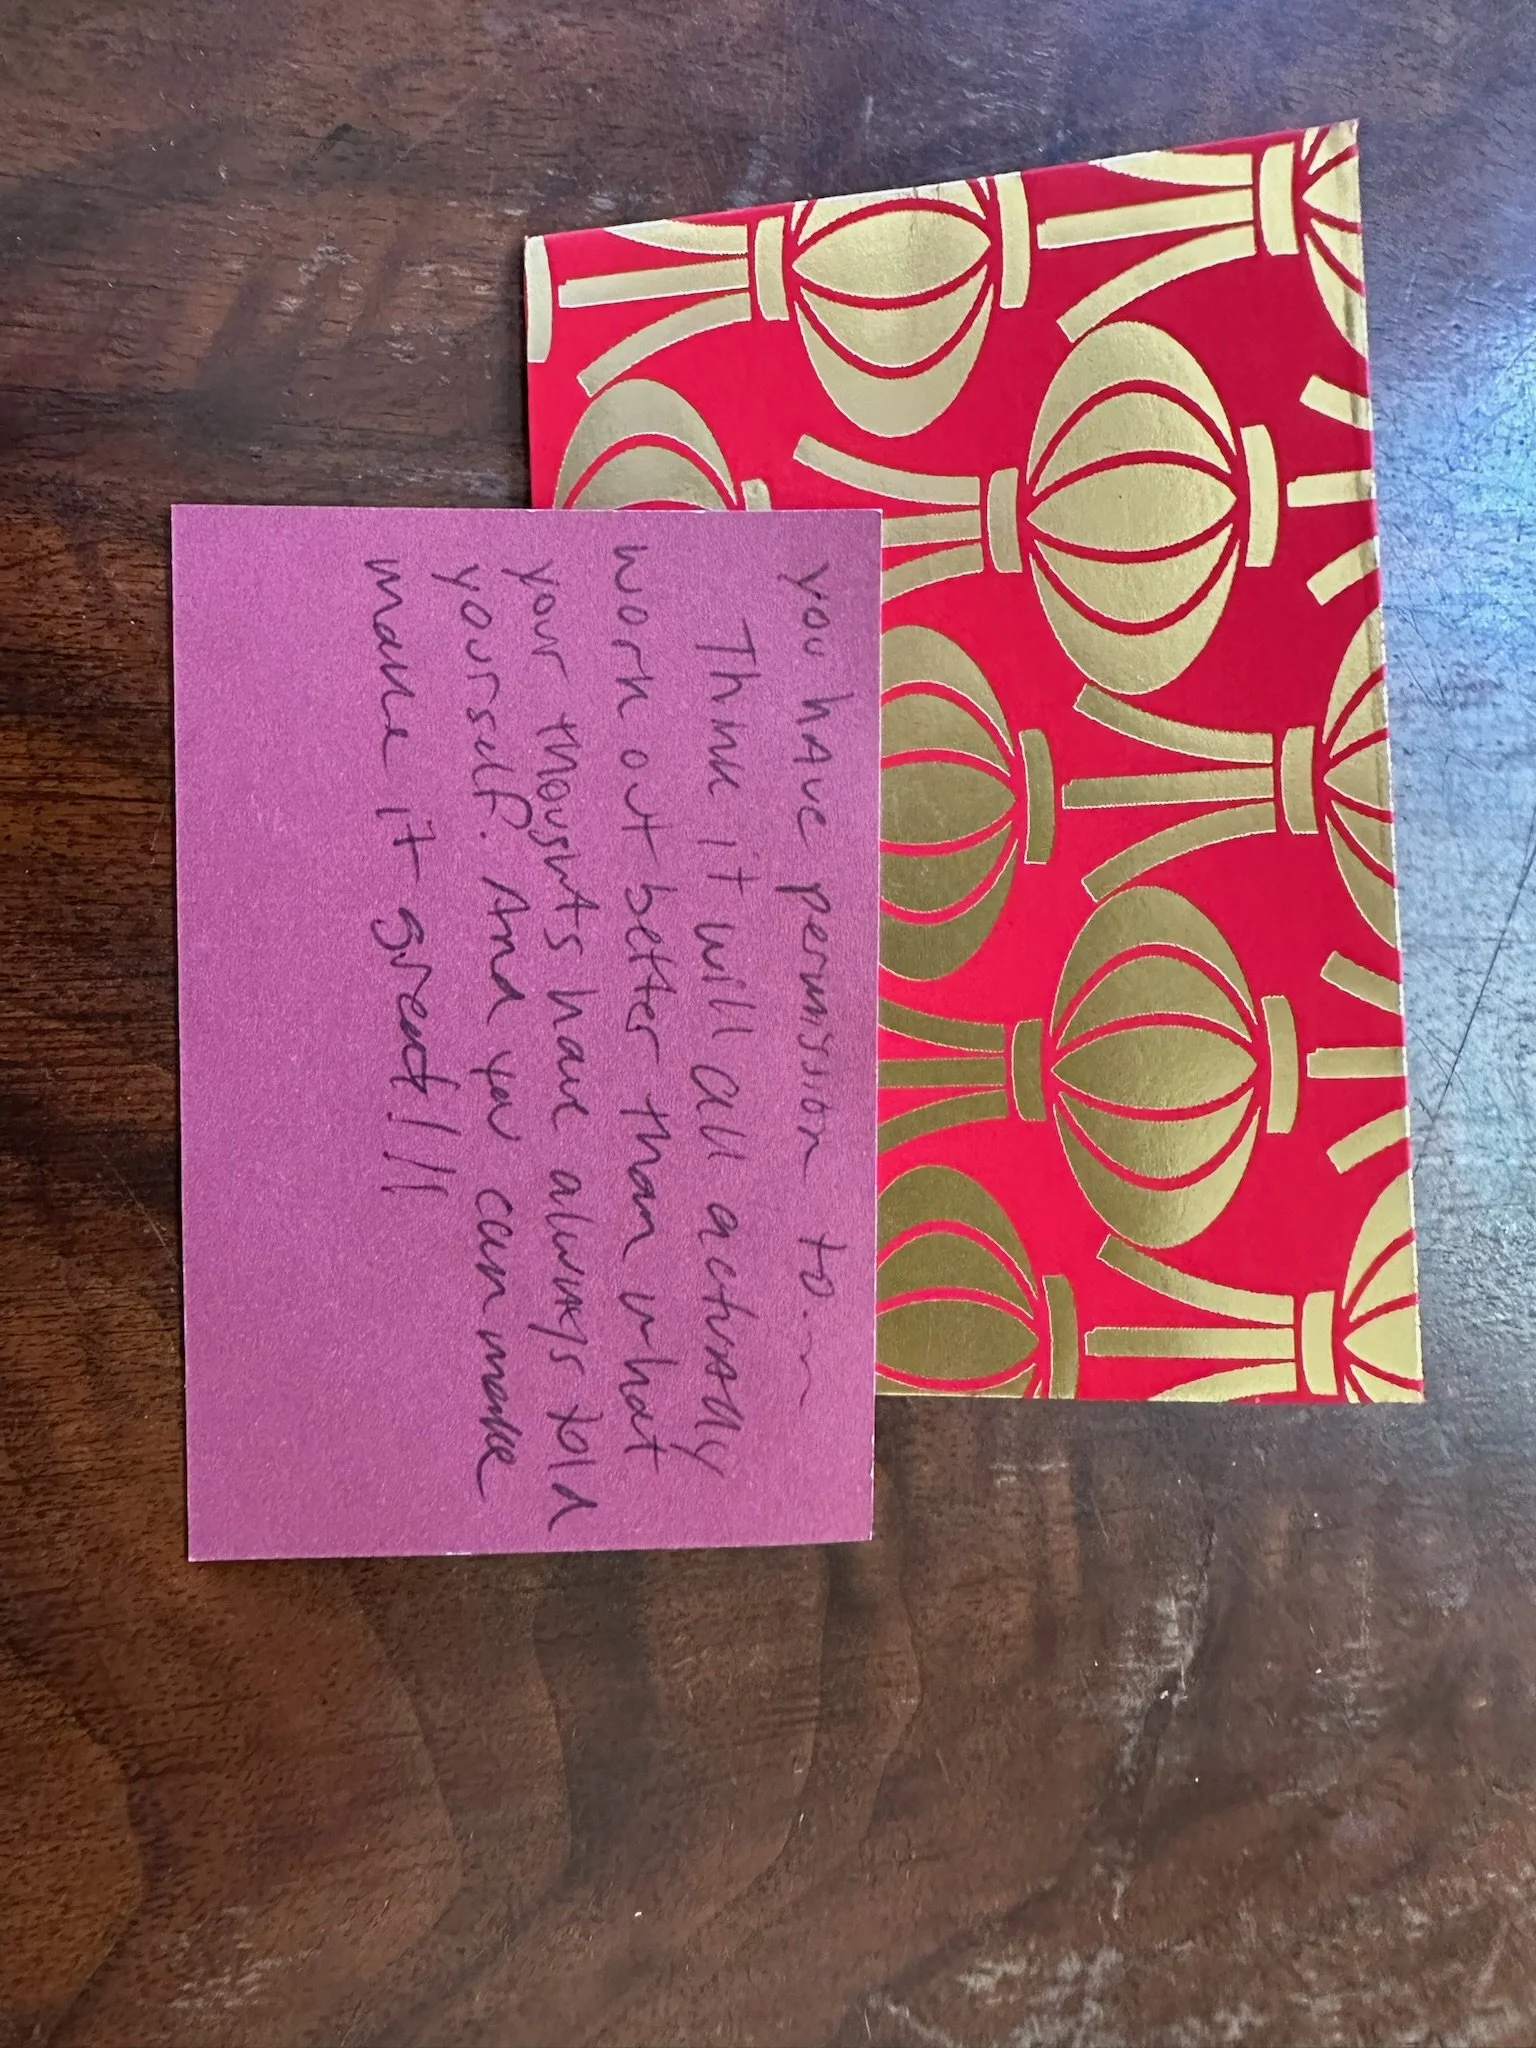 you have permission to...
Think it will all actually
work out better than what
your thoughts have always told
yourself. And you can make
make it great!!!